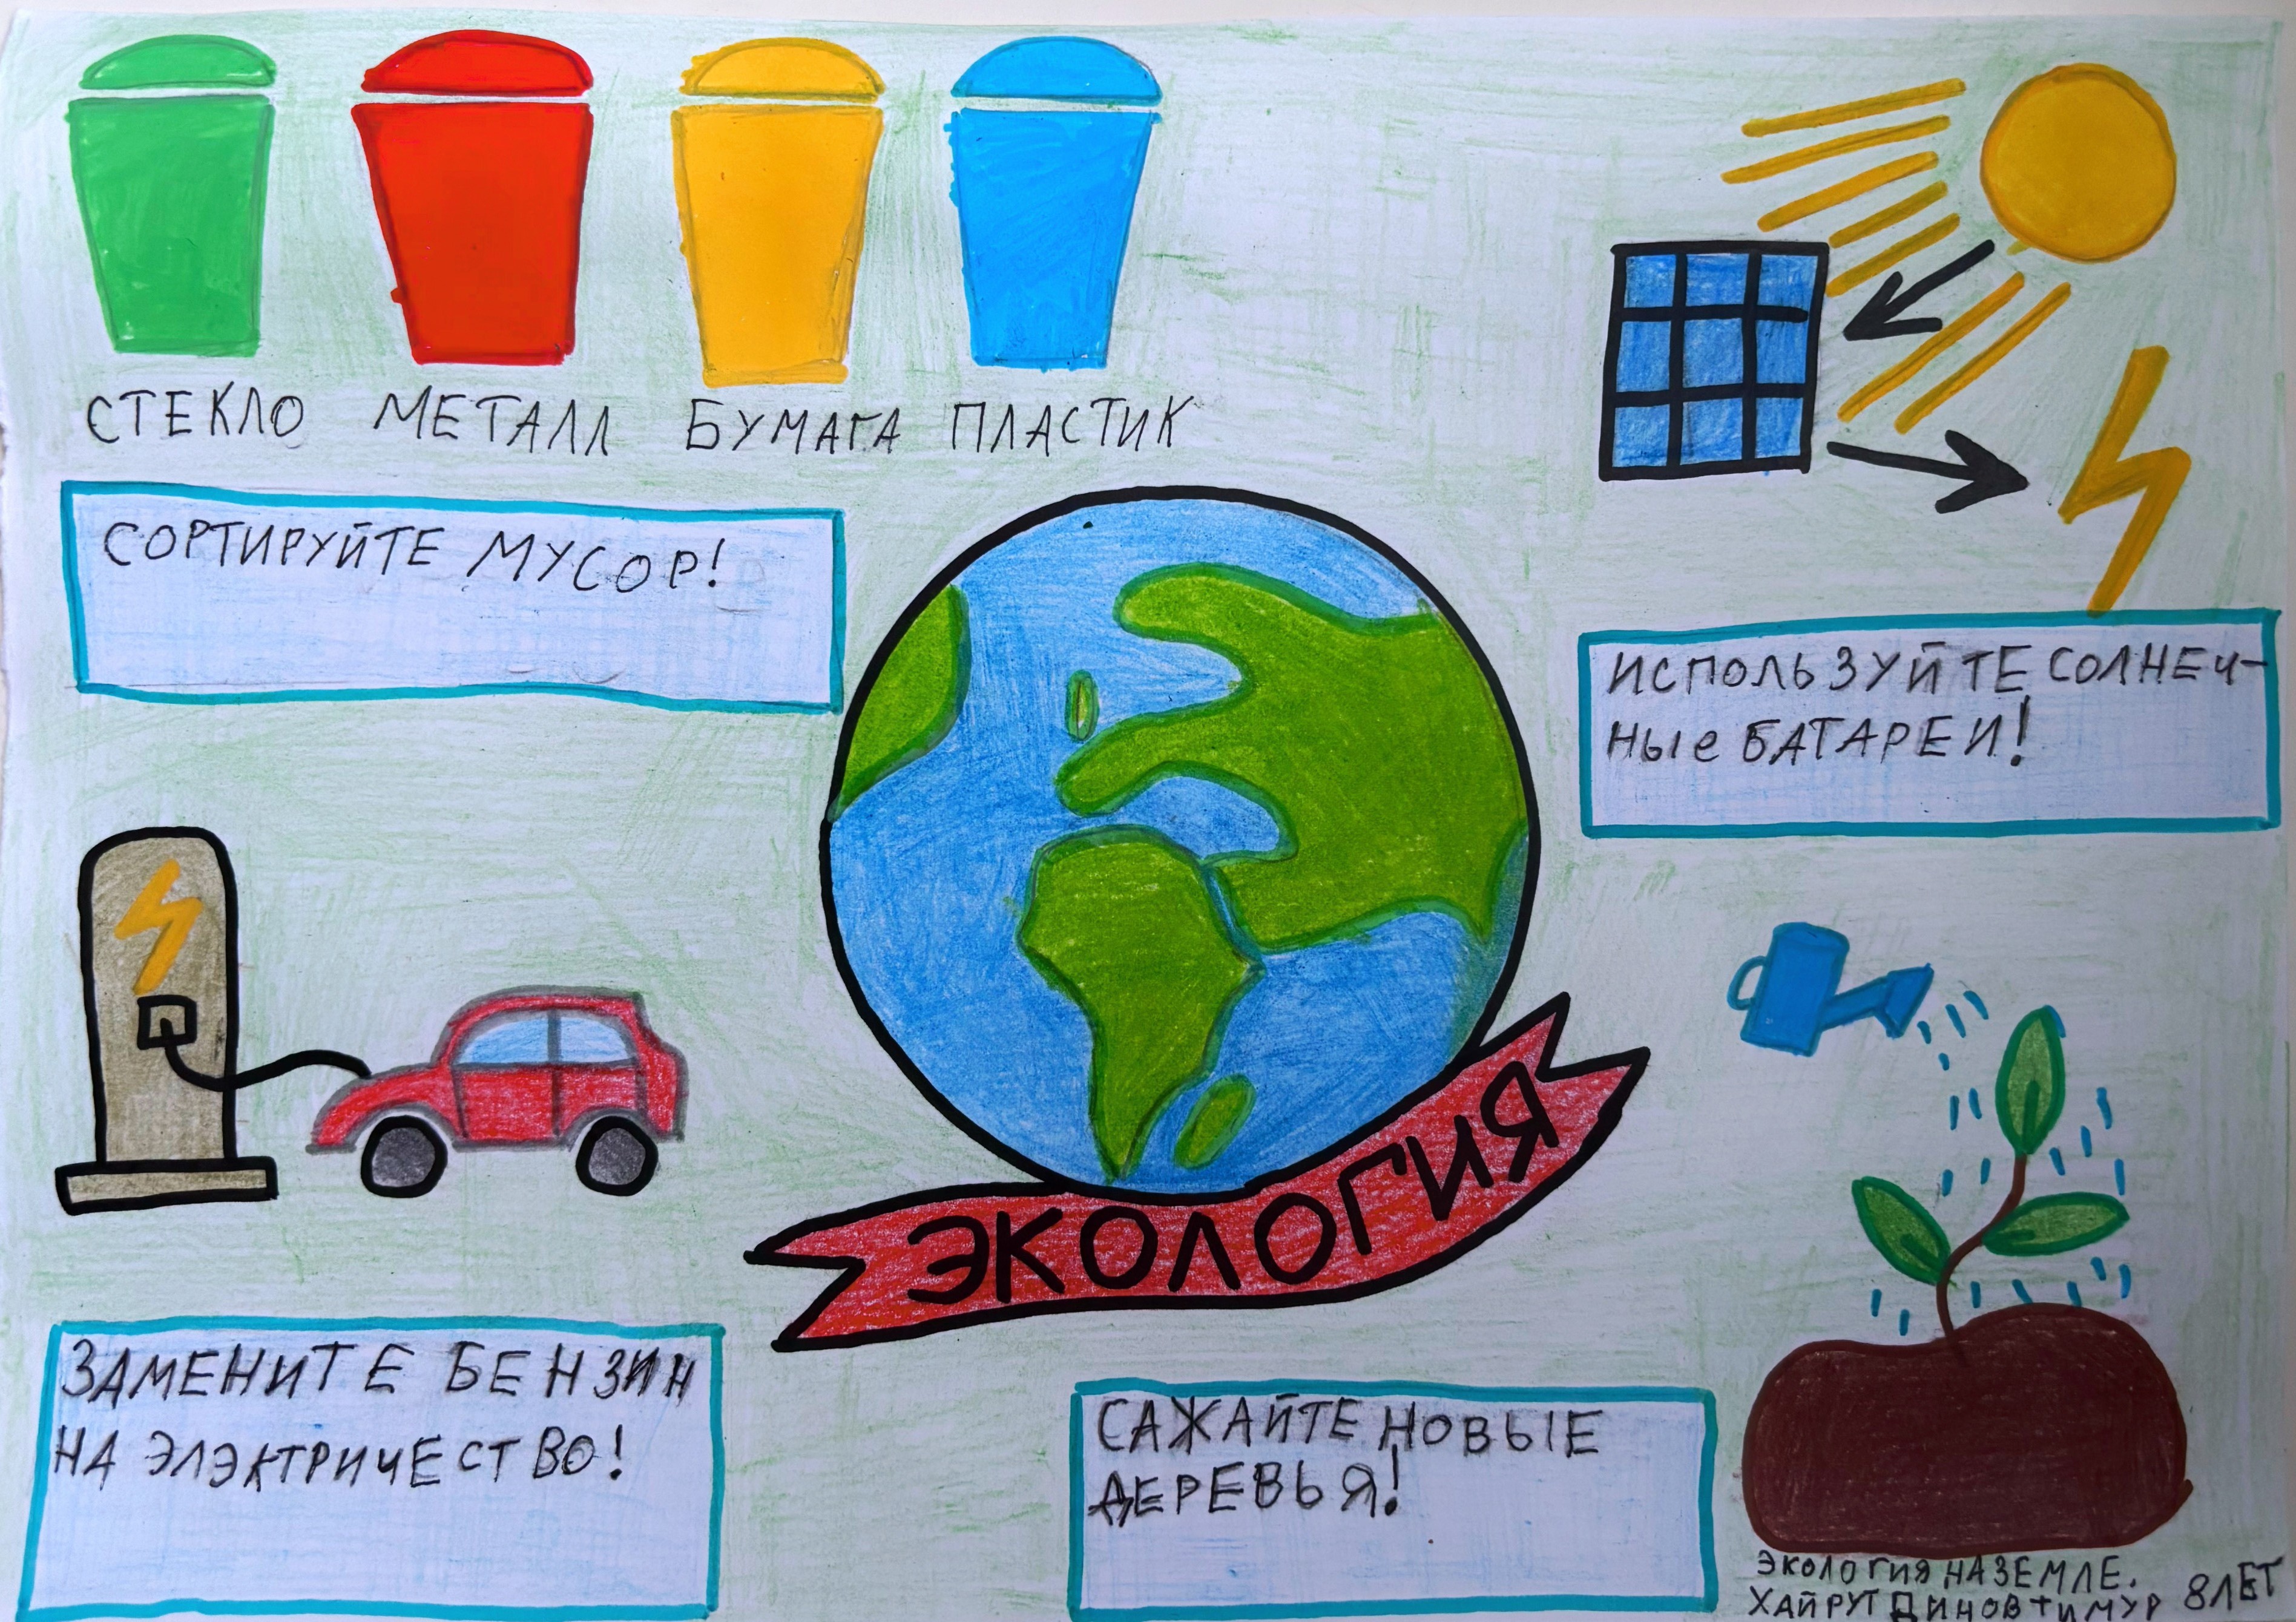 СТЕКЛО МЕТАЛЛ БУМАГА ПЛАСТИК
СОРТИРУЙТЕ МУСОР!
ИСПОЛЬЗУЙТЕ СОЛНЕЧ-
НЫе БАТАРЕИ!
ЭКОЛОГИЯ
ЗАМЕНИТЕ БЕНЗИН
НА ЭЛЭКТРИЧЕСТВО!
САЖАЙТЕ НОВЫЕ
ДЕРЕВЬЯ!
ЭКОЛОГИЯ НА ЗЕМЛЕ.
ХАЙРУТДИНОВ ТИМУР 8 ЛЕТ